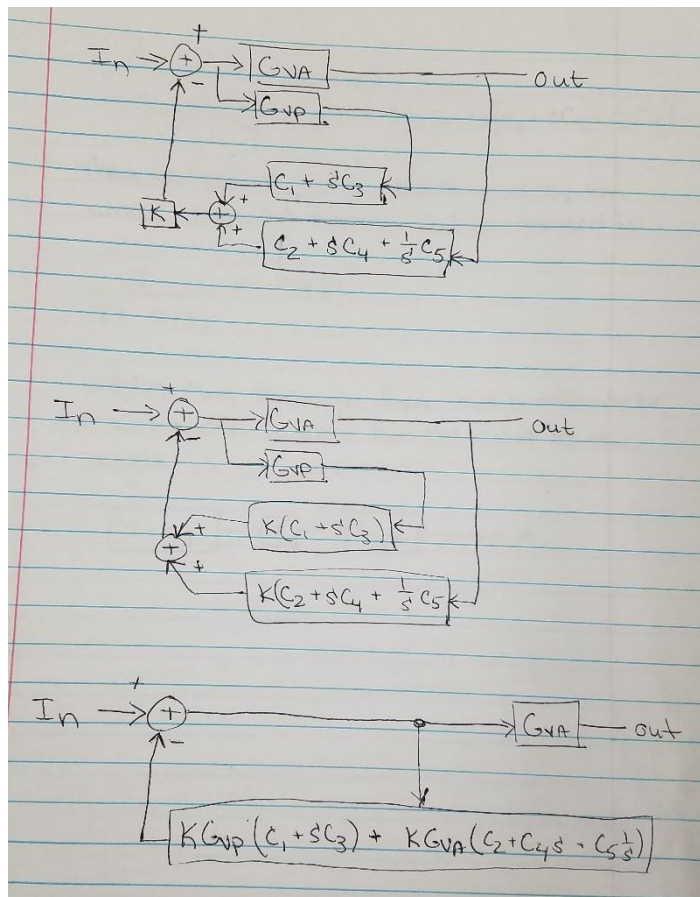 +
In → + GVA out
-
GVP
C1 + SC3
K + +
+
C2 + SC4 + 1/S C5
+
In → + GVA out
-
GVP
+ K(C1 + SC3)
+
+
K(C2 + SC4 + 1/S C5
+
In → + GVA out
-
KGVP(C1 + SC3) + KGVA(C2 + C4S + C5 1/S)